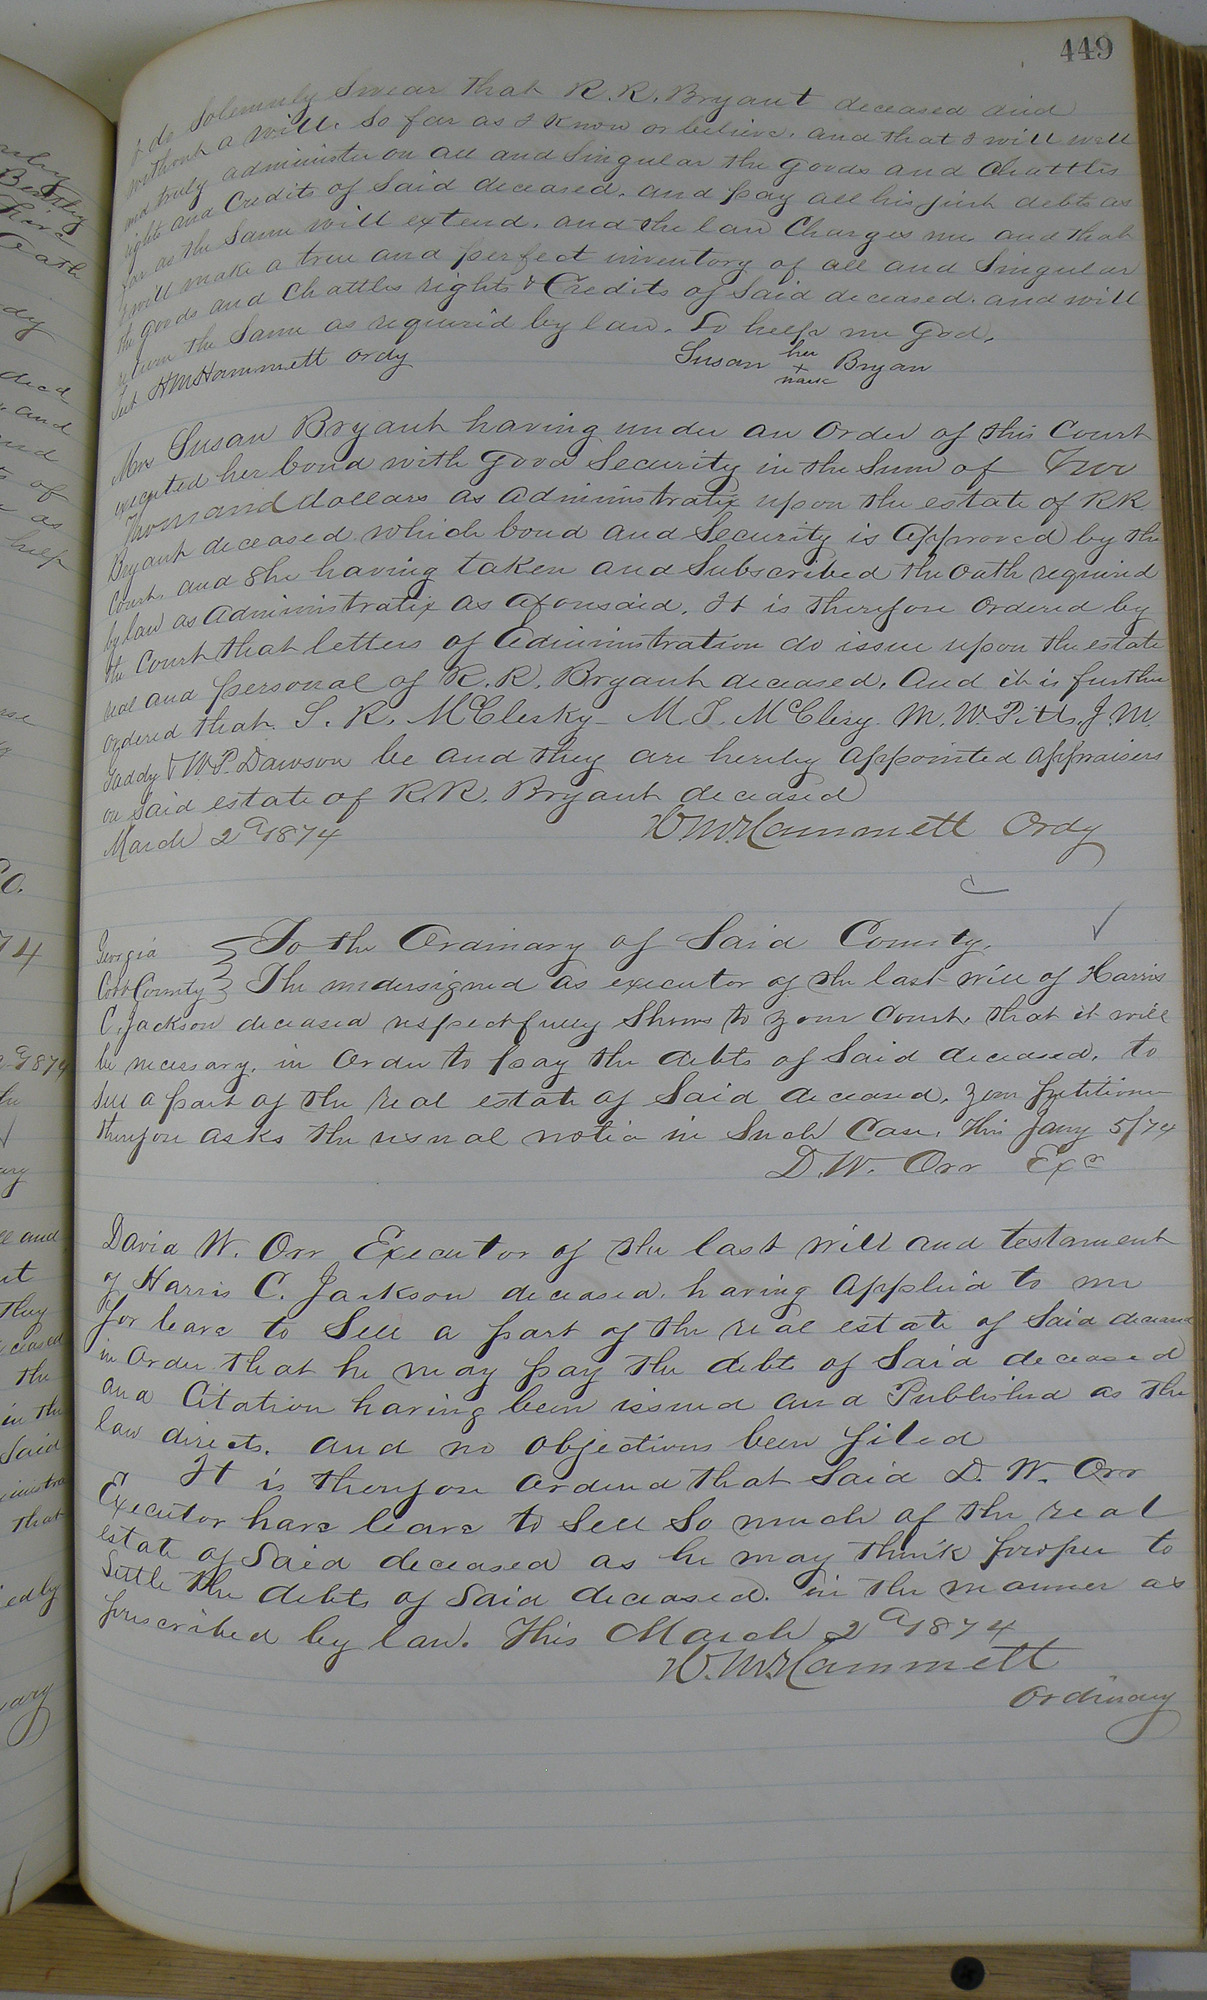 449
I do Solemnly Swear that R. R. Bryant deceased died
without a will. So far as I know or believe. and that I will well
and truly administer on all and Singular the goods and Chattles
rights and Credits of Said deceased. and pay all his just debts as
far as the Same will extend. and the law Charges me and that
I will make a true and perfect inventory of all and Singular
the goods and Chattles rights & Credits of Said deceased. and will
return the Same as required by law. So help me God.
Test HMHammett Ordy
Susan her Bryan
+
mark
Mrs Susan Bryant having under an order of this Court
executed her bond with good Security in the Sum of Two
Thousand dollars as administratix upon the estate of RR
Bryant deceased which bond and Security is Approved by the
Court. and She having taken and Subscribed the Oath required
by law as Administratix as aforesaid. It is therefore ordered by
the Court that letters of Administration do issue upon the estate
real and personal of R. R. Bryant deceased. And it is further
ordered that S. R. McClesky M. T. McClesy M. W Pitts. J. M.
Gaddy & W. P. Dawson be and they are hereby appointed appraisers
on Said estate of R.R. Bryant deceased
March 2d 1874
HMHammett Ordy
Georgia
Cobb County
To the Ordinary of Said County.
The undersigned as executor of the last will of Harris
C. Jackson deceased respectfully Shows to your Court. that it will
be necessary. in order to pay the debts of Said deceased. to
Sell a part of the real estate of Said deceased. your petitioner
therefore asks the usual notice in Such Case. this Jany 5/74
D. W. Orr Exr
David W. Orr Executor of the last will and testament
of Harris C. Jackson deceased. having applied to me
for leave to Sell a part of the real estate of Said deceased
in order that he may pay the debts of Said deceased
and Citation having been issued and Published as the
law directs. and no objections been filed
It is therefore ordered that Said D. W. Orr
Executor have leave to Sell So much of the real
estate of Said deceased as he may think proper to
Settle the debts of Said deceased. in the manner as
prescribed by law. This March 2d 1874
H.M.Hammett
Ordinary